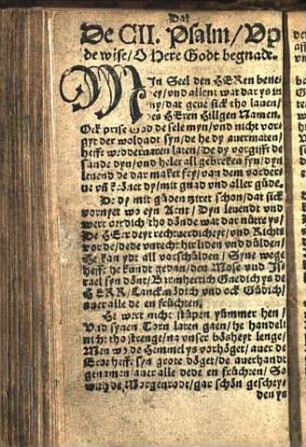 Dat
De CII. Psalm / Vp
de wise / O Here Godt begnade.
MIn Seel den HERen bene
dey / vnd allent wat dar ys in
my / dat geue sick tho lauen /
des HEren hilligen Namen.
Ock prise God de sele myn / vnd nicht vor-
gyt der woldadt syn / de he dy
hefft wedderuaren laten / De dy vorgifft de
sünde dyn / vnd heler all gebreken syn / dyn
leuend de dar maket fry / van dem vorder-
ue vñ kröner dy / mit gnad vnd aller güde.
De dy mit güden ziret schon / dat sick
vornyet wo eyn Arnt / Dyn leuendt vnd
De HErr deyt rechuerdicheyt / vnd Richt
vnrecht hir liden vnd dülden /
He kan ydt all vorschülden / Syne wege
hefft he kundt gedan / den Mose vnd Is-
rael syn dont / Barmhertich Gnedich ys de
HERR / Lanckmödich vnd ock Güdich /
auer alle de en früchten.
He wert nicht stüpen yümmer hen /
Vnd synen Torn laten gaen / he handelt
nicht tho strenge / na vnser bösheyt lenge /
Men wo de Hemmel ys vorhöget / auer de
Erde hefft syn grote döget / de auerhandt
genamen auer alle dede en früchten / So
wyth de Morgenrodt / gar schön geschey-
den ys